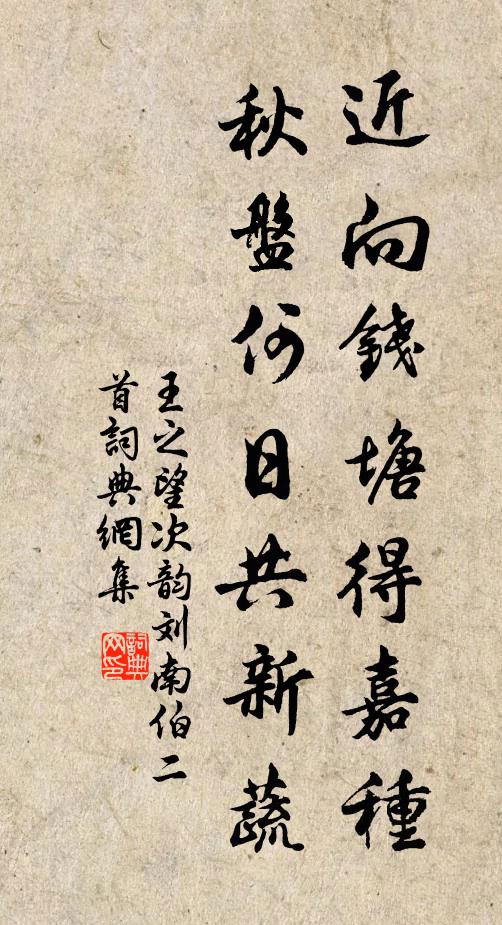 近向錢塘得嘉種
秋盤何日共新蔬
王之望次韵刘南伯二
首詞典網集
詞典網印